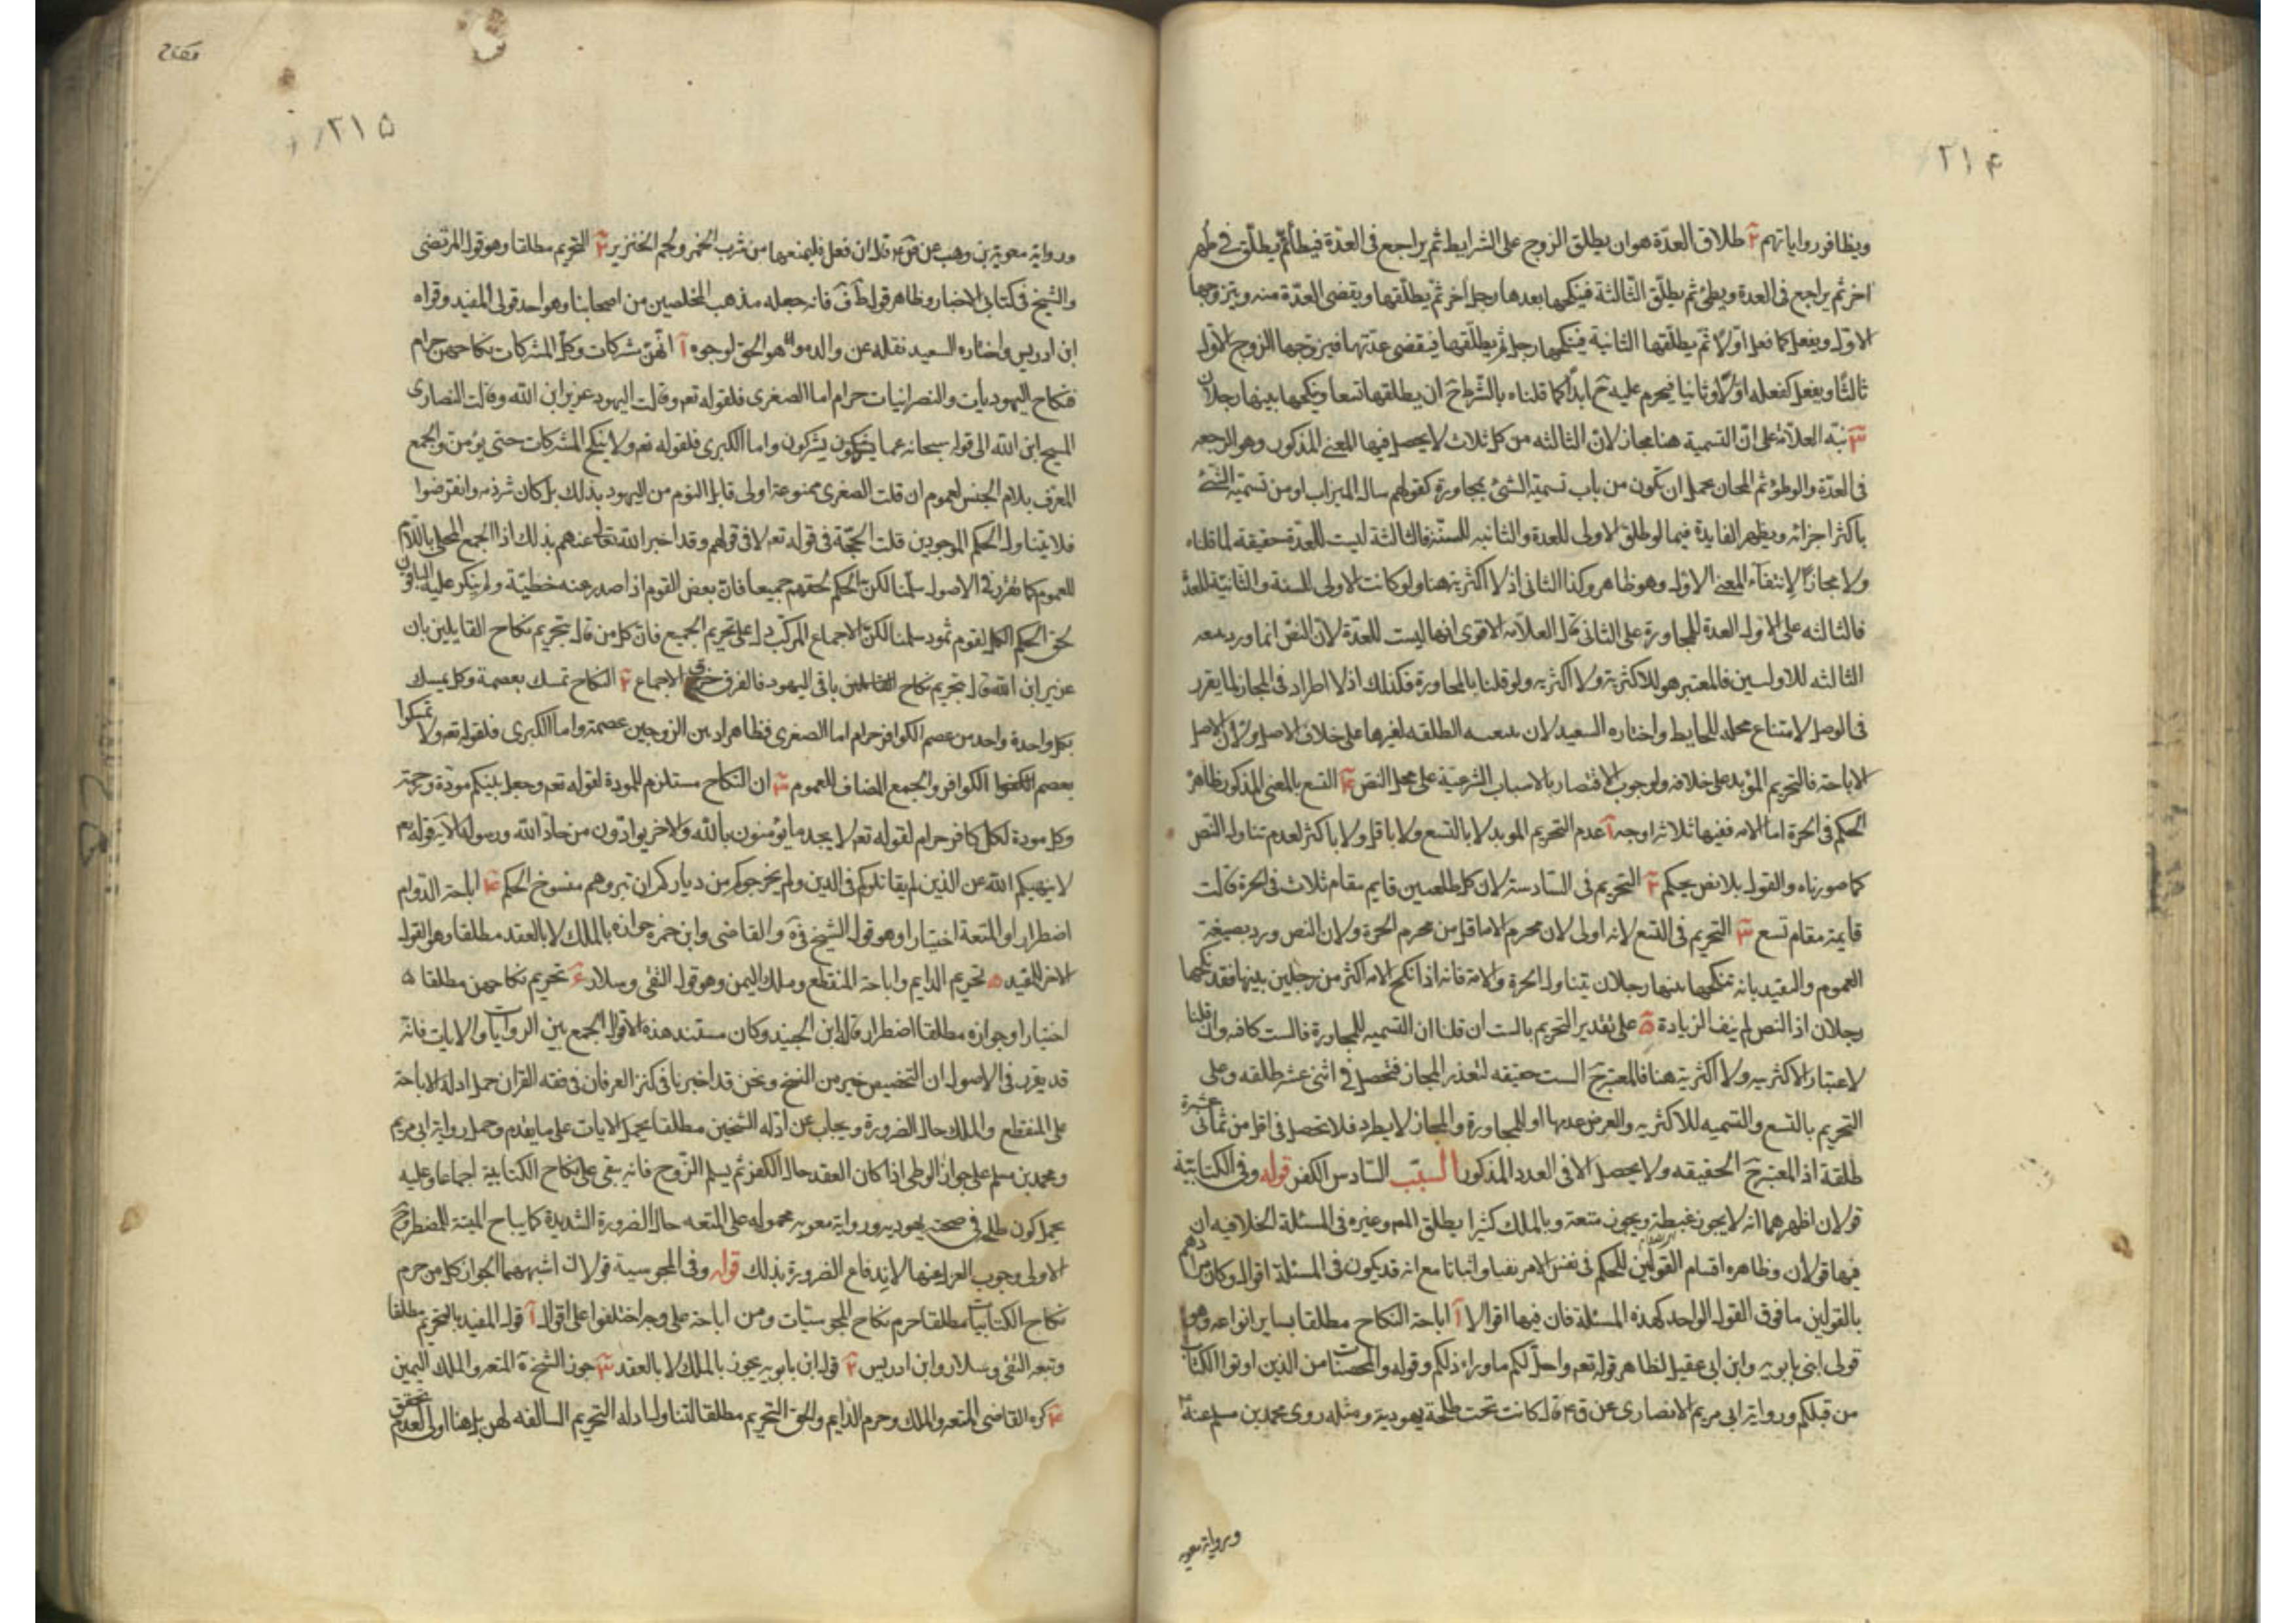 ۲۱۴
وبظافر رواياتهم ٢ طلاق العدّة هو ان يطلق الزوج على الشرايط ثم يراجع فى العدّة فيطأ ثم يطلّق فى طهر
اخر ثم يراجع فى العدة ويطئ ثم يطلّق الثالثة فينكحها بعدها رجل اخر ثم يطلّقها ويقضى العدّة منه ويتزوجها
الاول ويفعل كما فعل اولا ثم يطلّقها الثانية فينكحها رجل ثم يطلّقها فيقضى عدّتها فيزوجها الزوج الاول
ثالثا ويفعل كفعله اولا وثانيا فيحرم عليه ح ابدا كما قلناه بالشرط ح ان يطلقها تسعا وينكحها بينها رجلان
٣ نبّه العلامة على انّ التسمية هنا مجاز لانّ الثالثه من كل ثلاث لا يحصل فيها المعنى المذكور وهو المراجعه
فى العدّة والوطؤ ثم المجاز يحمل ان يكون من باب تسمية الشئ بمجاورة كقولهم سال الميزاب او من تسمية الشئ
باكثر اجزائه ويظهر الفايدة فيما لو طلق الاولى للعدة والثانيه للسنّة فالثالثة ليست للعدّة حقيقه لما قلناه
ولا مجازا لانتفاء المعنى الاول وهو ظاهر وكذا الثانى اذ لا اكثرية هنا ولو كانت الاولى للسنة والثانية للعدّة
فالثالثه على الاول العدة للمجاورة على الثانى قال العلامه الاقوى انها ليست للعدّة لان النصّ انما ورد
الثالثه للاولسين فالمعتبر هو للاكثرية ولا اكثريه ولو قلنا بالمجاورة فكذلك اذ لا اطراد فى المجاز لما يقرر
فى الوصل لامتناع محله للحايط واختاره السعيد لان الطلقه لغيرها على خلاف الاصل ولان الاصل
الاباحة فالتحريم المؤبد على خلافه ولوجوب الاقتصار بالاسباب الشرعيّة على محل النص ٤ التسع بالمعنى المذكور ظاهر
الحكم فى الحرة اما الامه ففيها ثلاثه اوجه آ عدم التحريم الموبد لا بالتسع ولا باقل ولا باكثر لعدم تناول النص
كما صورناه والقول بلا نص يحكم ٢ التحريم فى السّادسة لان كل طلقتين قايم مقام ثلاث فى الحرة قالت
قايمة مقام تسع ٣ التحريم فى التسع لانه اولى لان محرم الاما اقل من محرم الحرة ولان النص ورد بصيغة
العموم والتقييد بانه تنكحها بينها رجلان يتناول الحرة والامة فانه اذا نكح الامه اكثر من رجلين بينها فقد نكحها
رجلان اذ النص لم ينف الزيادة ٥ على تقدير التحريم بالست ان قلنا ان التسميه للمجاورة فالست كافه وان قلنا
لاعتبار الاكثريه ولا اكثرية هنا فالمعتبر ح الست حقيقه لتعذر المجاز فتحصل فى اثنى عشر طلقه وعلى
التحريم بالتسع والتسميه للاكثريه والعرض عدمها او للمجاورة والمجاز لا يطرد فلا تحصل فى اقل من ثمانى عشرة
طلقة اذ المعتبر ح الحقيقه ولا يحصل الا فى العدد المذكور السبب السّادس الكفر قوله وفى الكتابيّة
قولان اظهرهما انه لا يجوز غبطة ويجوز متعة وبالملك كثيرا يطلق المم وغيره فى المسئلة الخلافيه ان
فيها قولان وظاهره اقسام القولين للحكم فى نفس الامر نفيا واثباتا مع انه قد يكون فى المسئلة اقوال وكان مرادهم
بالقولين ما فوق القول الواحد كهذه المسئلة فان فيها اقوالا آ اباحة النكاح مطلقا بساير انواعه وهو
قول ابنى بابويه وابن ابى عقيل لظاهر قوله تعه واحلّ لكم ما وراء ذلكم وقوله والمحصنات من الذين اوتوا الكتاب
من قبلكم ورواية ابى مريم الانصارى عن ق ٤ قال كانت تحت طلحة يهودية ومثله روى محمد بن مسلم عنه ٤
ورواية معويه
۲۱۵
ورواية معوية بن وهب عن ق ٤ قال ان فعل فليمنعها من شرب الخمر ولحم الخنزير ٢ التحريم مطلقا وهو قول المرتضى
والشيخ فى كتابى الاخبار وظاهر قول ط ف فانه جعله مذهب المخلصين من اصحابنا وهو احد قولى المفيد وقواه
ابن ادريس واختاره السعيد نقله عن والده وانه هو الحق لوجوه آ انهنّ مشركات وكلّ المشركات نكاحهن حرام
فنكاح اليهوديات والنصرانيات حرام اما الصغرى فلقوله تعه وقالت اليهود عزير ابن الله وقالت النصارى
المسيح ابن الله الى قوله سبحانه عما يشركون واما الكبرى فلقوله تعه ولا تنكح المشركات حتى يؤمن والجمع
المعرّف بلام الجنس لعموم ان قلت الصغرى ممنوعة اولى قابل النوم من اليهود بذلك بل كان شرذمه وانقرضوا
فلا يتناول الحكم الموجودين قلت الحجّة فى قوله تعه لا فى قولهم وقد اخبر الله تعالى عنهم بذلك اذا الجمع المحلى باللام
للعموم كما تقرر فى الاصول سلّمنا لكنّ الحكم لحقهم جميعا فانّ بعض القوم اذا صدر عنه خطيّة ولم ينكر عليه الباقون
لحق الحكم الكل لقوم ثمود سلمنا لكنّ الاجماع المركّب دل على تحريم الجميع فانّ كل من قال بتحريم نكاح القايلين بان
عزير ابن الله قال بتحريم نكاح باقى اليهود فالفرق خرق الاجماع ٢ النكاح تمسك بعصمة وكل تمسك
بكل واحدة واحد من عصم الكوافر حرام اما الصغرى فظاهر اذ بين الزوجين عصمة واما الكبرى فلقوله تعه ولا تمسكوا
بعصم الكوافر والجمع المضاف للعموم ٣ ان النكاح مستلزم للمودة لقوله تعه وجعل بينكم مودّة ورحمة
وكل مودة لكل كافر حرام لقوله تعه لا يجد ما يؤمنون بالله والاخر يوادّون من حادّ الله ورسوله الآية قوله تعه
لا ينهيكم الله عن الذين لم يقاتلوكم فى الدين ولم يخرجوكم من دياركم ان تبروهم منسوخ الحكم ٤ اباحة الدّوام
اضطرارا والمتعة اختيارا وهو قول الشيخ فى ية والقاضى وابن حمزه جوازه بالملك لا بالعقد مطلقا وهو القول
الاخر للمفيد ٥ تحريم الدايم واباحة المنقطع وملك اليمن وهو قول التقى وسلار ٦ تحريم نكاحهن مطلقا
اختيارا وجوازه مطلقا اضطرارا قاله ابن الجنيد وكان مستند هذه الاقوال الجمع بين الروايات والايات فانّه
قد يقرر فى الاصول ان التخصيص خير من النسخ ونحن قد اخبرنا فى كنز العرفان فى فقه القران حمل ادلة الاباحة
على المنقطع والملك حال الضرورة ويجاب عن ادله الشيخين مطلقا بحمل الايات على ما يقدم وحمل رواية ابى مريم
ومحمد بن مسلم على جواز الوطى اذا كان العقد حال الكفر ثم يسلم الزّوج فانه يبقى على نكاح الكتابية اجماعا وعليه
يحمل كون طلحه فى صحته يهوديه ورواية معويه محموله على المتعه حال الضرورة الشديدة كما يباح الميتة للمضطر وح
الاولى وجوب العزل عنها لاندفاع الضرورة بذلك قوله وفى المجوسية قولان اشبههما الجواز كل من حرم
نكاح الكتابيات مطلقا حرم نكاح المجوسيّات ومن اباحه على وجه اختلفوا على اقوال آ قول المفيد بالتحريم مطلقا
وتبعه التقى وسلار وابن ادريس ٢ قول ابن بابويه يجوز بالملك لا بالعقد ٣ جوز الشيخ ية المتعه والملك اليمين
٤ كره القاضى المتعه والملك وحرم الدايم والحق التحريم مطلقا لتناول ادله التحريم السالفه لهن بل هنا اولى لعدم تحقق